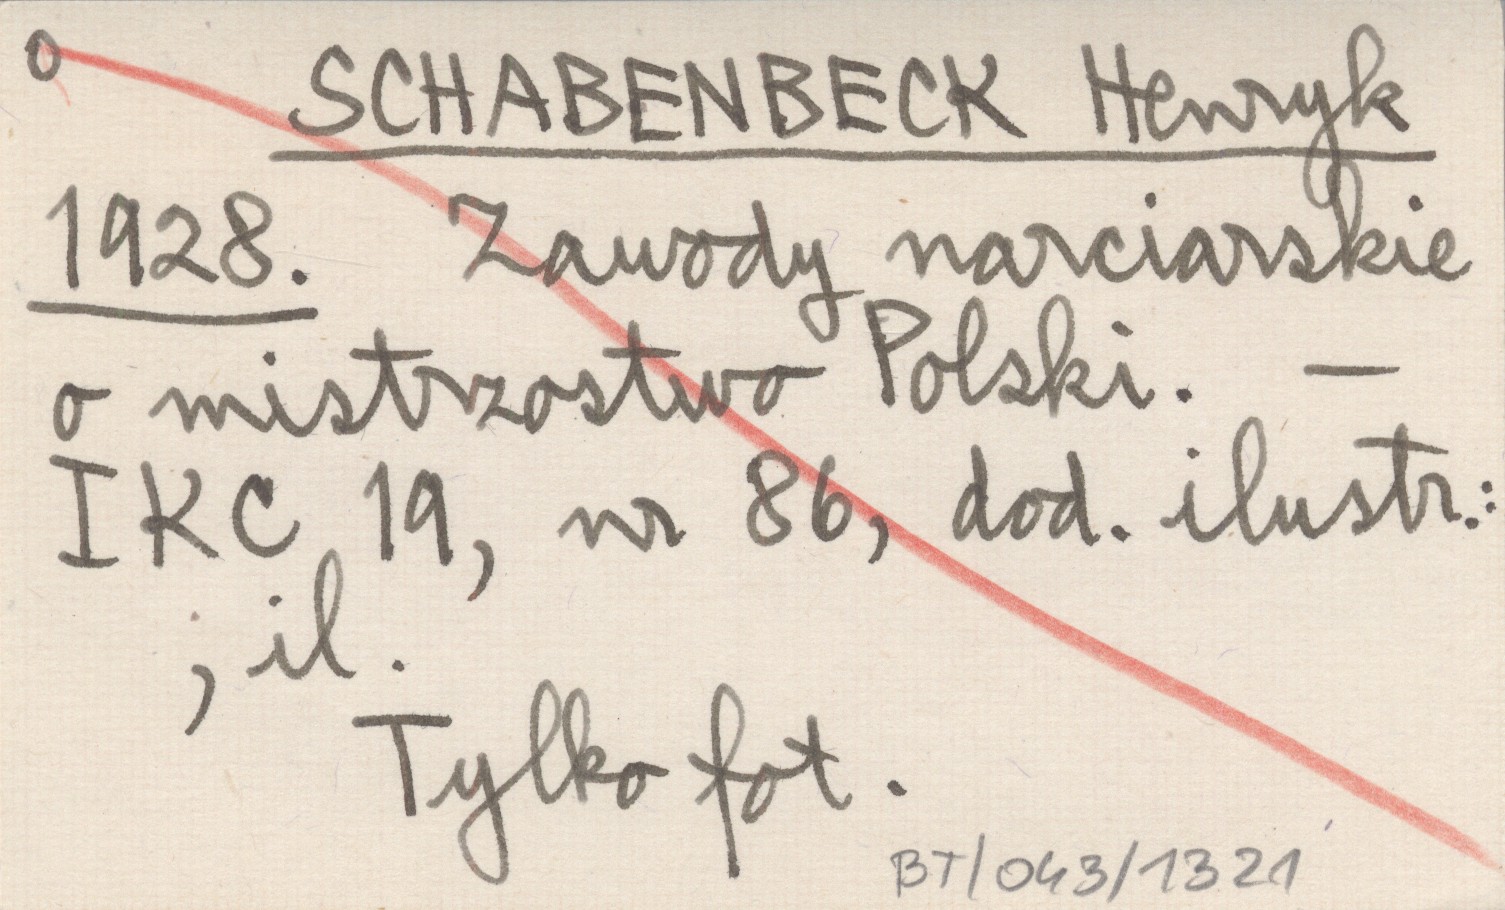 o SCHABENBECK Henryk
1928. Zawody narciarskie
o mistrzostwo Polski. —
IKC 19, nr 86, dod. ilustr.:
; il.
Tylko fot.
BT/043/1321